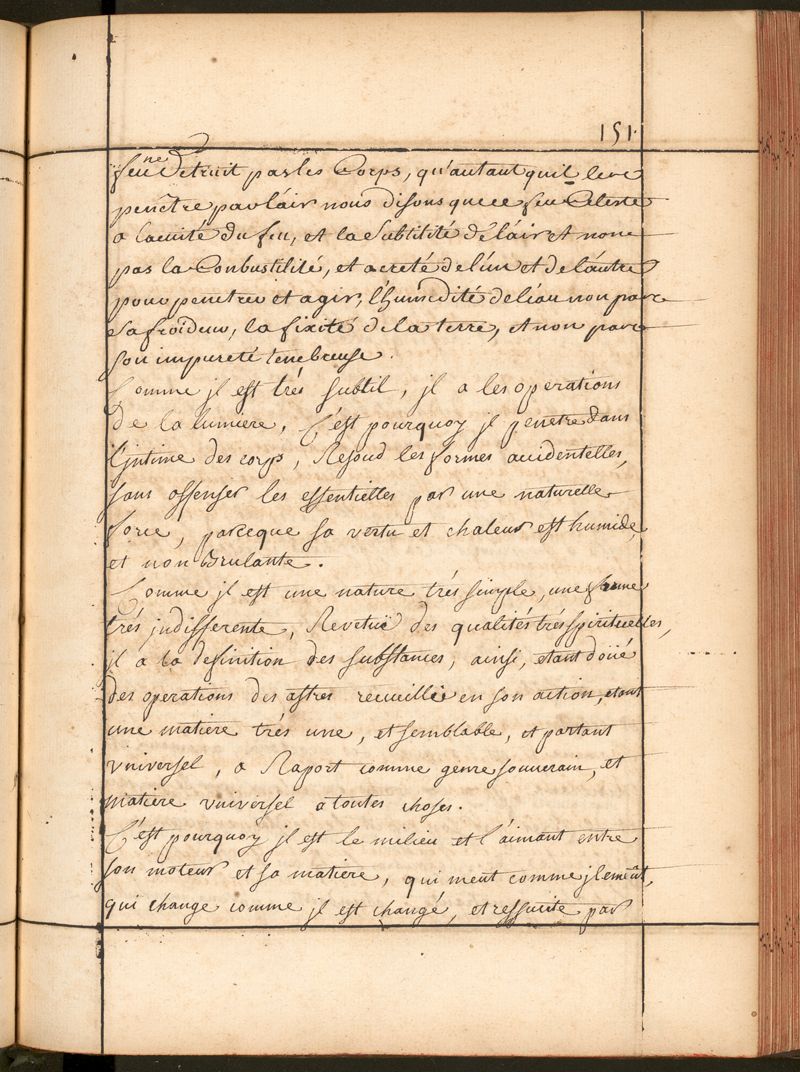 151.
feu ne Detruit pas les Corps, qu'autant quil les
penétre par láir nous disons que ce feu Celeste
a lacuité du feu, et la Subtilité de láir et non
pas la Conbustilité, et acreté de lún et de láutre
pour penetrer et agir, l'humidité de léau non pas
sa froideur, la fixité de la terre, et non pas
son impureté tenebreuse.
Comme jl est trés subtil, jl a les operations
de la lumiere, C'est pourquoy jl penetre dans
l'jntime des corps, Resoud les formes accidentelles,
sans offenser les essentielles par une naturelle
force, parceque sa vertu et chaleur est humide,
et non Brulante.
Comme jl est une nature trés simple, une forme
trés jndifferente, Revetuë des qualités trés spirituelles,
jl a la definition des substances, ainsi, etant doüé
des operations des astres recueillie en son action, etant
une matiere trés une, et semblable, et partant
vniversel, a Raport comme genre souverain, et
matiere vniversel a toutes choses.
C'est pourquoy jl est le milieu et l'aimant entre
son moteur et sa matiere, qui meut comme jl meût,
qui change comme jl est changé, et ressucite par